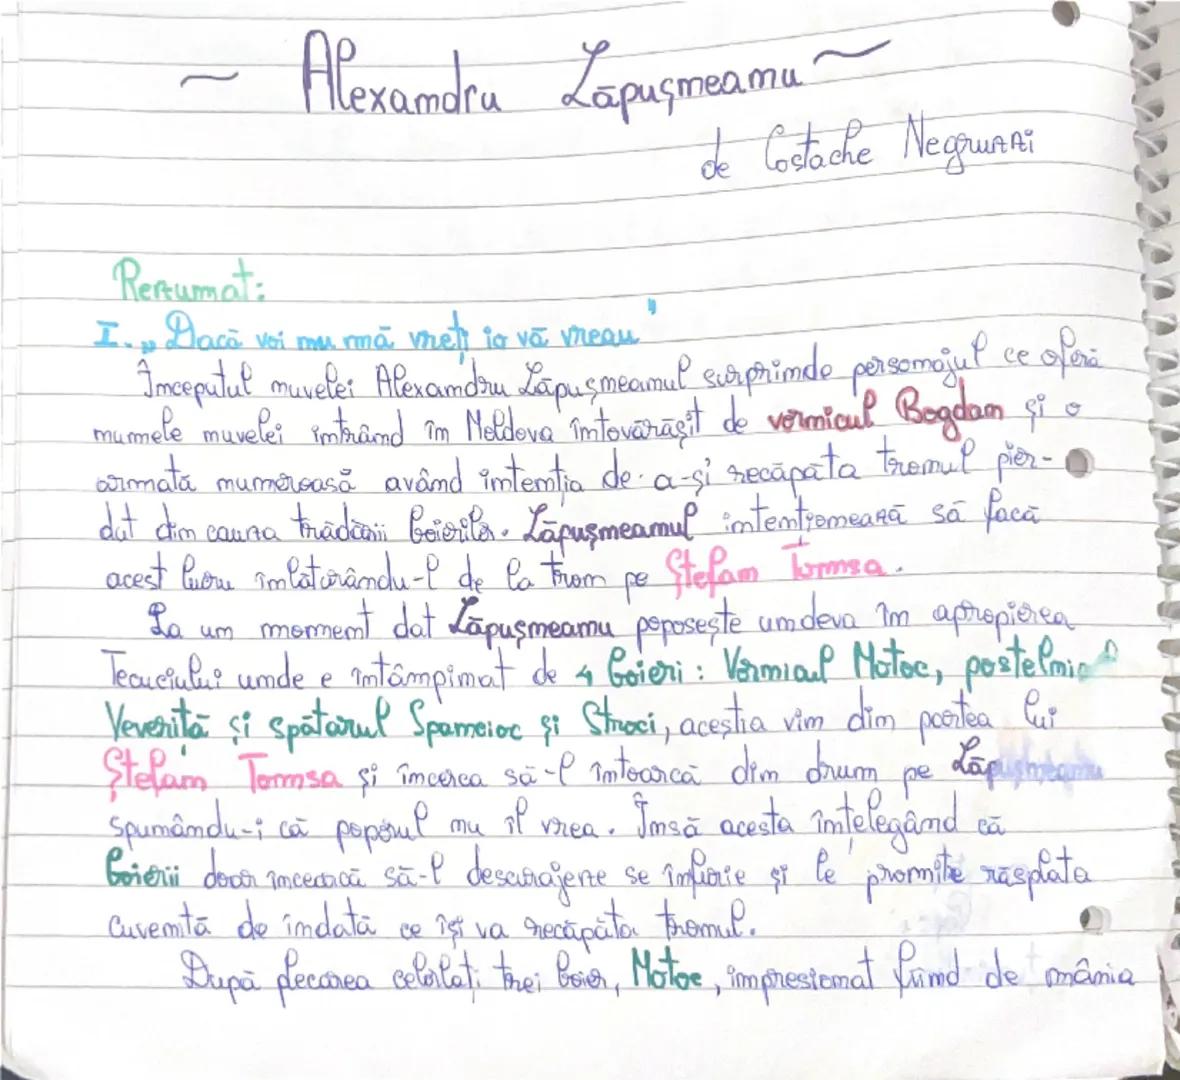 ~ Alexandru Lăpușneanu ~
de Costache Negruzzi
Rezumat:
I. „Dacă voi nu mă vreți io vă vreau"
Începutul nuvelei Alexandru Lăpușneanul surprinde personajul ce oferă
numele nuvelei intrând în Moldova întovărășit de vornicul Bogdan și o
armată numeroasă având intenția de a-și recăpăta tronul pier-
dut din cauza trădării boierilor. Lăpușneanul intenționează să facă
acest lucru înlăturându-l de la tron pe Ștefan Tomsa.
La un moment dat Lăpușneanu poposește undeva în apropierea
Tecuciului unde e întâmpinat de 4 boieri: Vornicul Motoc, postelnicul
Veveriță și spătarul Spancioc și Stroci, aceștia vin din partea lui
Ștefan Tomsa și încerca să-l întoarcă din drum pe Lăpușneanu
spunându-i că poporul nu îl vrea. Însă acesta înțelegând că
boierii doar încearcă să-l descurajeze se înfurie și le promite răsplata
cuvenită de îndată ce își va recăpăta tronul.
După plecarea celorlați trei boier, Motoc, impresionat fiind de mânia